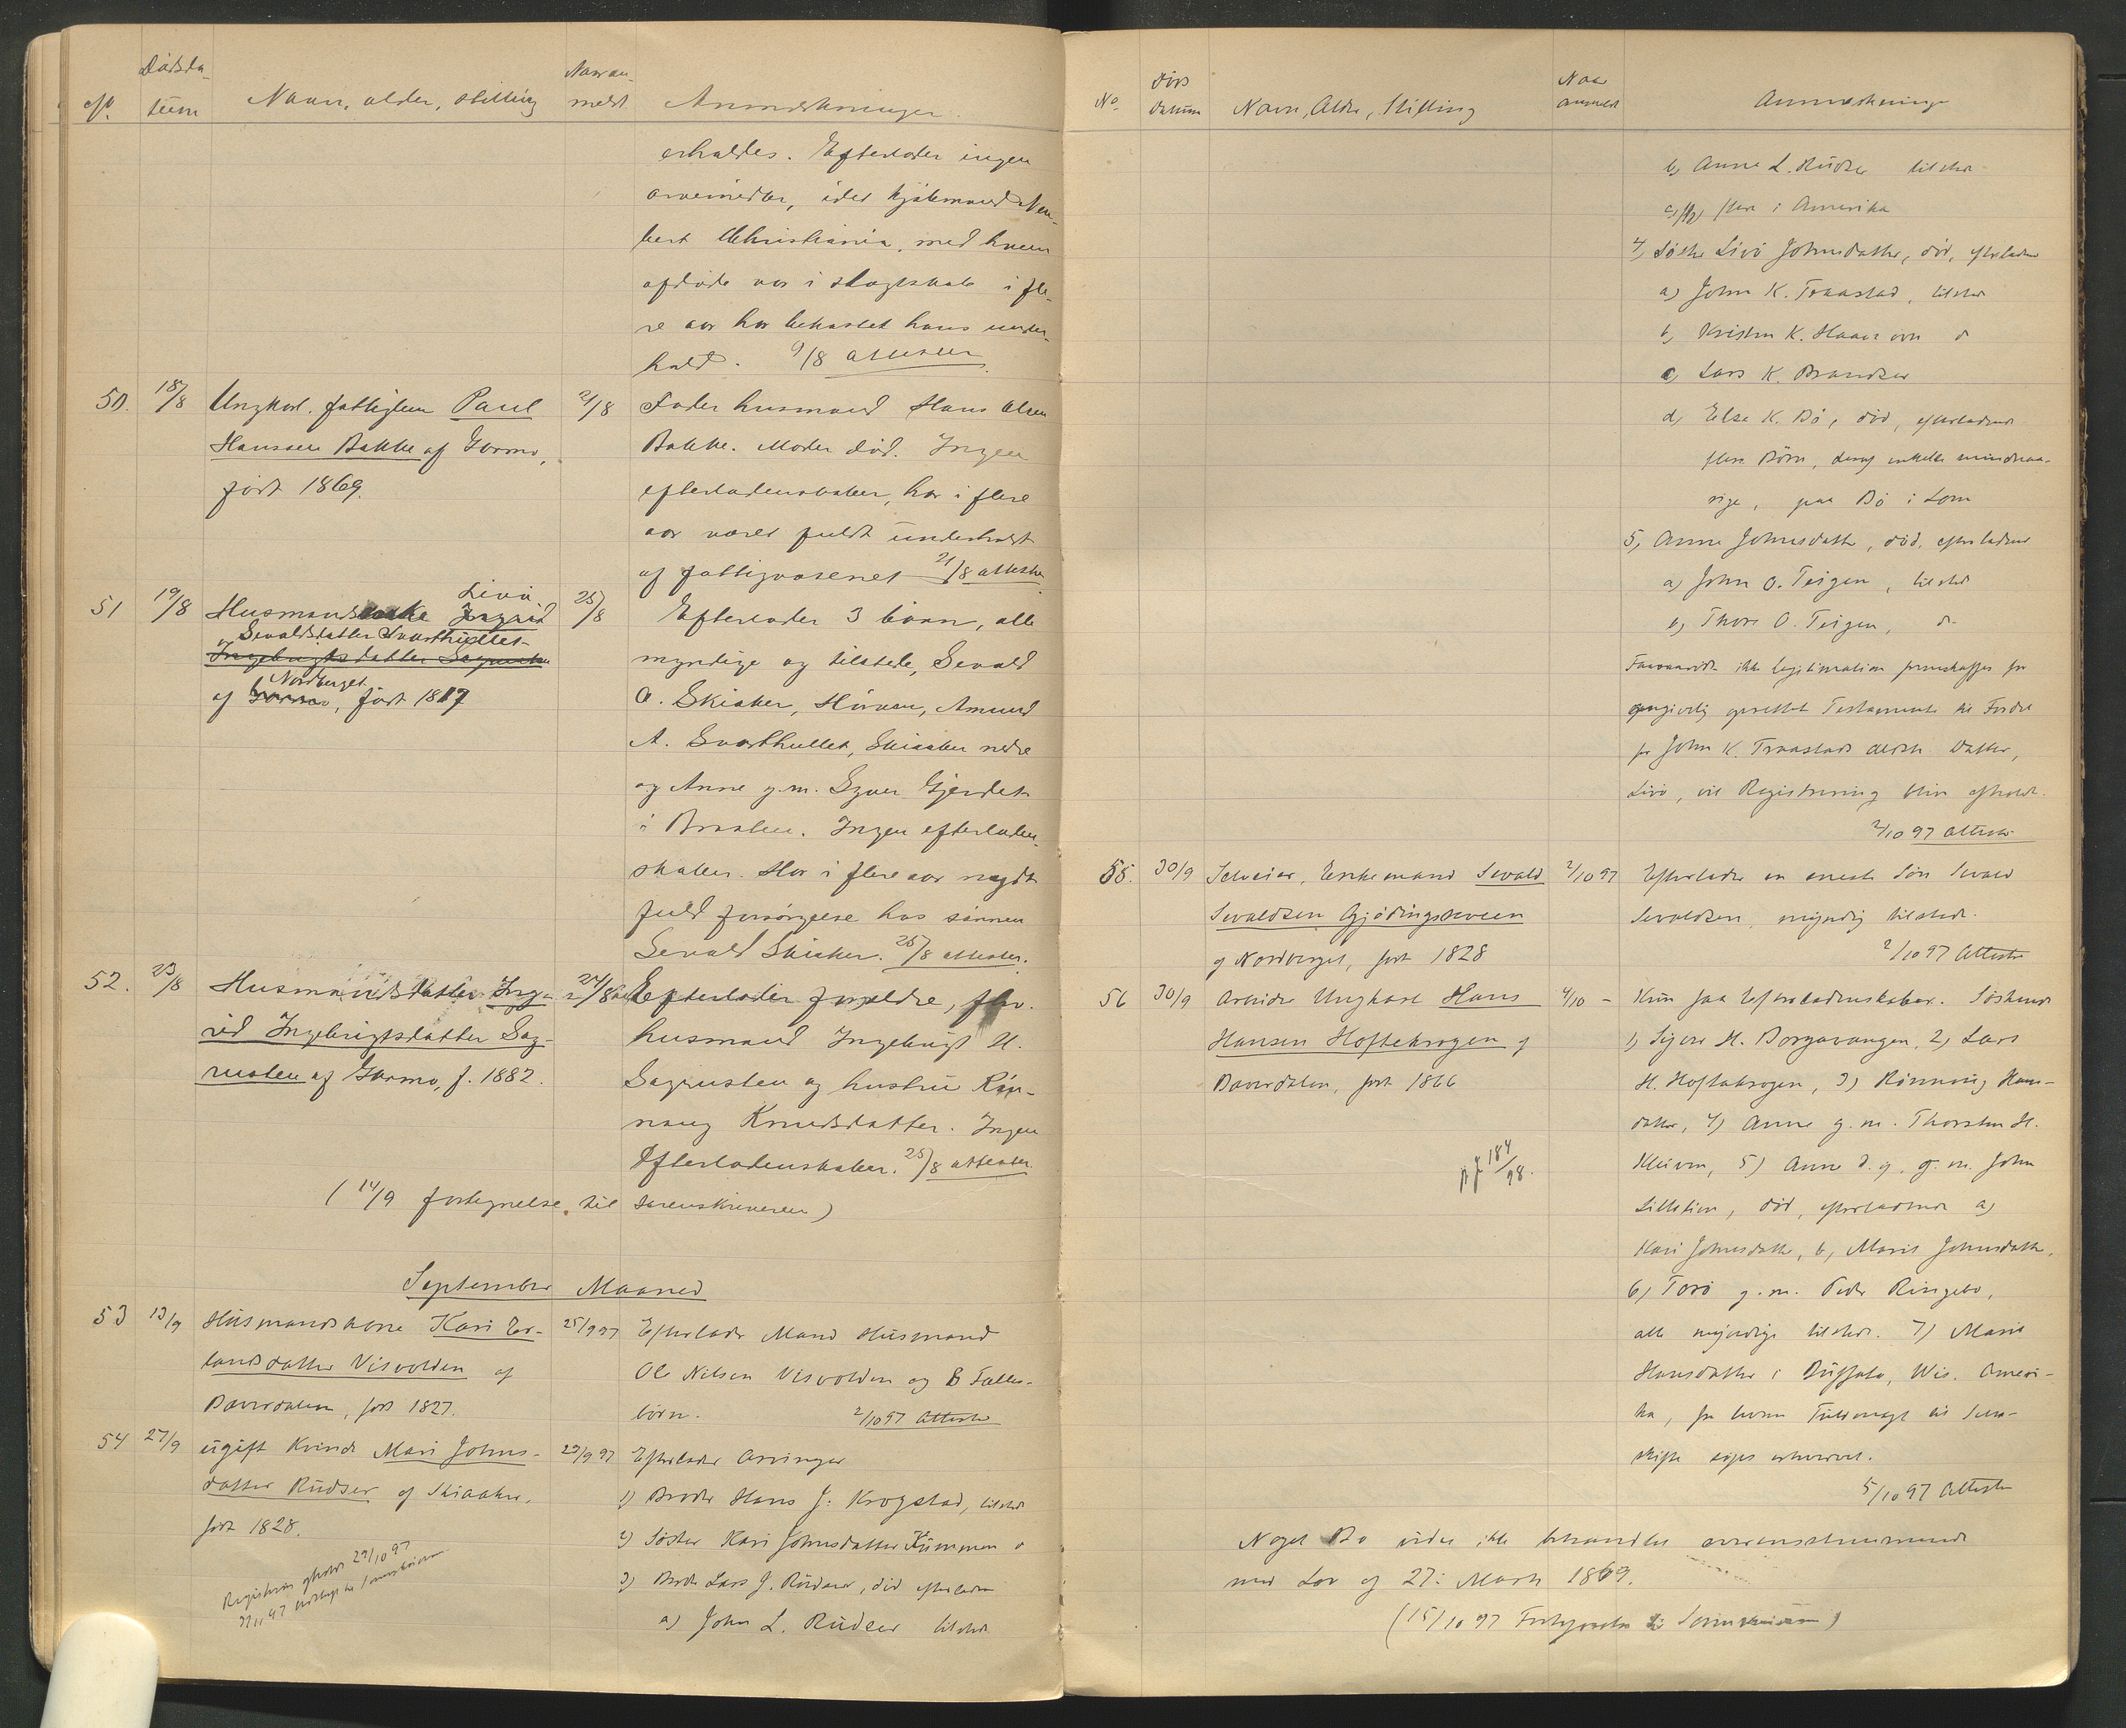 No. Dødsda- Navn, alder, stilling Naar an- Anmerkninger.
tum meldt
erholdes. Efterlader ingen
arvemidler, idet kjøbmand
Christiania, med hvem
afdøde var i slægtskab i fle-
re aar har bekostet hans under-
hold. 9/8 attesten.
50. 18/8 Ungkarl, fattiglem Paul 21/8 Fader husmand Hans Olsen
Hanssen Bakke af Garmo, Bakke. Moder død. Ingen
født 1869. efterladenskaber, har i flere
aar været fuldt underholdt
af fattigvæsenet 21/8 attesten
Livø
51 19/8 Husmandsenke Ingrid 25/8 Efterlader 3 børn, alle
Sevaldsdatter Svarthullet
Ingebrigtsdatter Sagrusten myndige og tilstede, Sevald
Nordberget
af Garmo, født 1817 A. Skiaker, Amund
A. Svarthullet, Skiaaker nedre
og Anne g.m. Syver Gjerdet
i Braaten. Ingen efterladen-
skaber. Har i flere aar nydt
fuld forsørgelse hos sønnen
Sevald Skiaker. 25/8 attesten.
52. 23/8 Husmandsdatter Ing- 24/8 Efterlader forældre, fhv.
rid Ingebrigtsdatter Sag- husmand Ingebrigt H.
rusten af Garmo, f. 1882. Sagrusten og hustru Røn-
naug Knudsdatter. Ingen
Efterladenskaber. 25/8 attesten.
(14/9 fortegnelse til sorenskriveren)
September Maaned
53 13/9 Husmandskone Kari Er- 25/9 97 Efterlader Mand Husmand
landsdatter Visvolden af Ole Nilsen Visvolden og 8 Fælles-
Bæverdalen, født 1827. børn. 2/10 97 Attester
54 27/9 ugift Kvinde Mari Johns- 29/9 97 Efterlader Arvinger
datter Rudser af Skiaaker, 1) Broder Hans J. Krogstad, tilstede
født 1828. 2) Søster Kari Johnsdatter
3) Broder Lars J. Rudser, død efterladende
a) John L. Rudser tilstede
Registrering afholdt 29/10 97
No. Døds Navn, Alder, Stilling Naar Anmerkninger
datum anmeldt
b) Anne L. Rudser tilstede
flere i Amerika
4) Søster Livø Johnsdatter, død, efterladende
a) John K. Traastad, tilstede
b) Kristen K. d
c) Lars K. Brandser
d) Else K. Bø, død, efterladende
flere Børn, deraf enkelte mindreaa-
rige, paa Bø i Lom
5) Anne Johnsdatter, død, efterladende
a) John O. Teigen, tilstede
b) Thore O. Teigen, d-
ikke legitimation fremskaffes for
opgivelig oprettet Testamente til Fordel
for John K. Traastads ældste Datter,
Livø, vil Registrering blive afholdt.
2/10 97 attester
55. 30/9 Selveier, Enkemand Sevald 2/10 97 Efterlader en eneste Søn Sevald
Sevaldsen Gjødingskveen Sevaldsen, myndig tilstede.
af Nordberget, født 1828 2/10 97 Attester
56 30/9 Arbeider Ungkarl Hans 4/10 - Kun faa Efterladenskaber. Søskende
Hansen Hoftekrogen af 1) Sigvor H. Borgavangen, 2) Lars
Bæverdalen, født 1866 H. Hoftekrogen, 3) Rønnaug Hans-
datter, 4) Anne g.m. Thorsten H.
184/98. Kleiven, 5) Anne d.y. g.m. John
Lillelien, død, efterladende a)
Kari Johnsdatter, b) Marit Johnsdatter,
6) Torø g.m. Peder Ringebo,
alle myndige tilstede. 7) Marit
Hansdatter i Buffalo, Wis. Ameri-
ka, fra hvem Fuldmagt til Selv-
skifte siges erhvervet.
5/10 97 Attester
Noget Bo vides ikke behandlet overensstemmende
med Lov af 27: Marts 1869.
(15/10 97 Fortegnelse til Sorenskriveren)